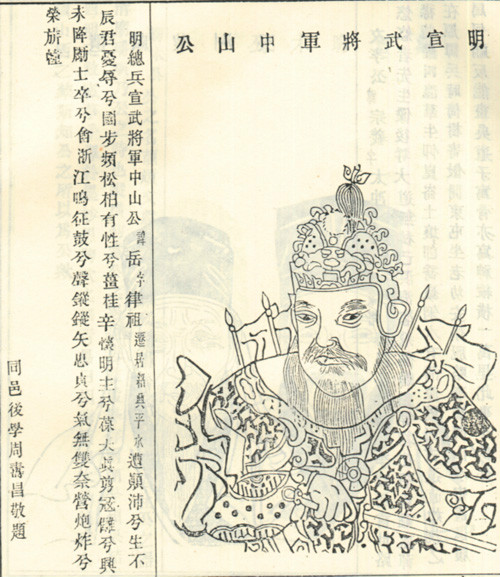 明宣武將軍中山公
明總兵宣武將軍中山公諱岳字律祖遷居興平水遭顛沛兮生不
辰君憂辱兮國步頻松柏有性兮薑桂辛懷明主兮葆大真剪冦讎兮興
未降勵士卒兮會浙江鳴征鼓兮聲鏦鏦矢忠貞兮氣無雙奈營炮炸兮
榮旂幢
同邑後學周壽昌敬題